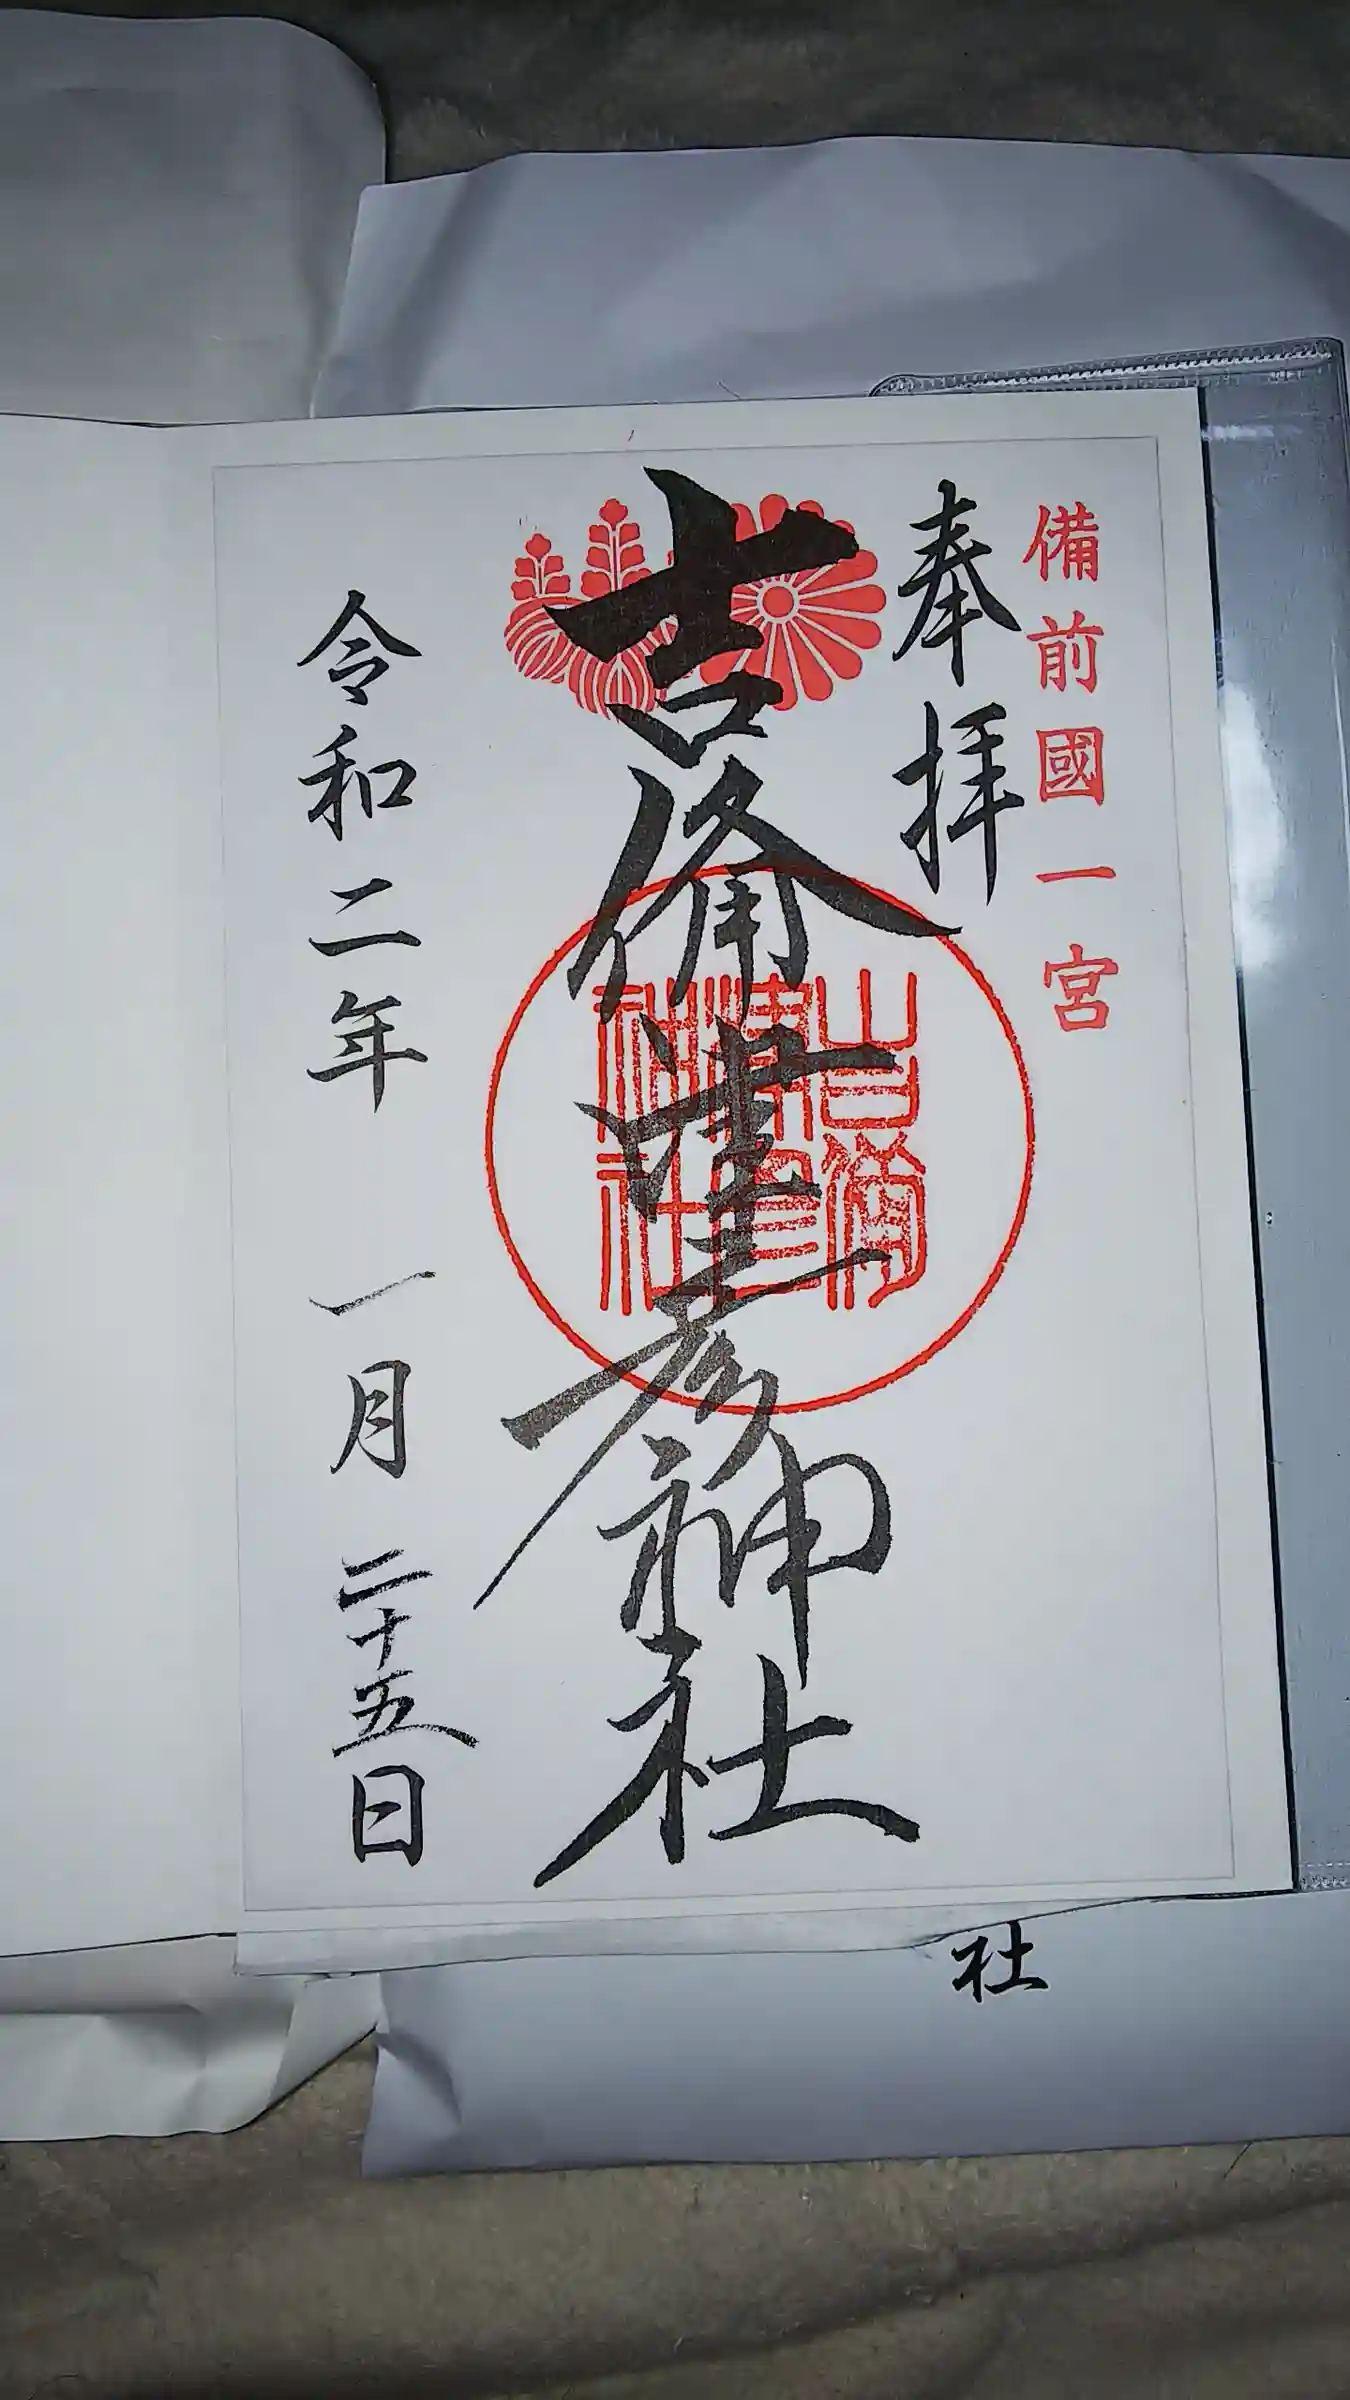 備前國一宮
奉拝
吉備津彦神社
吉備
津彦
神社
令和二年 一月 二十五日
社